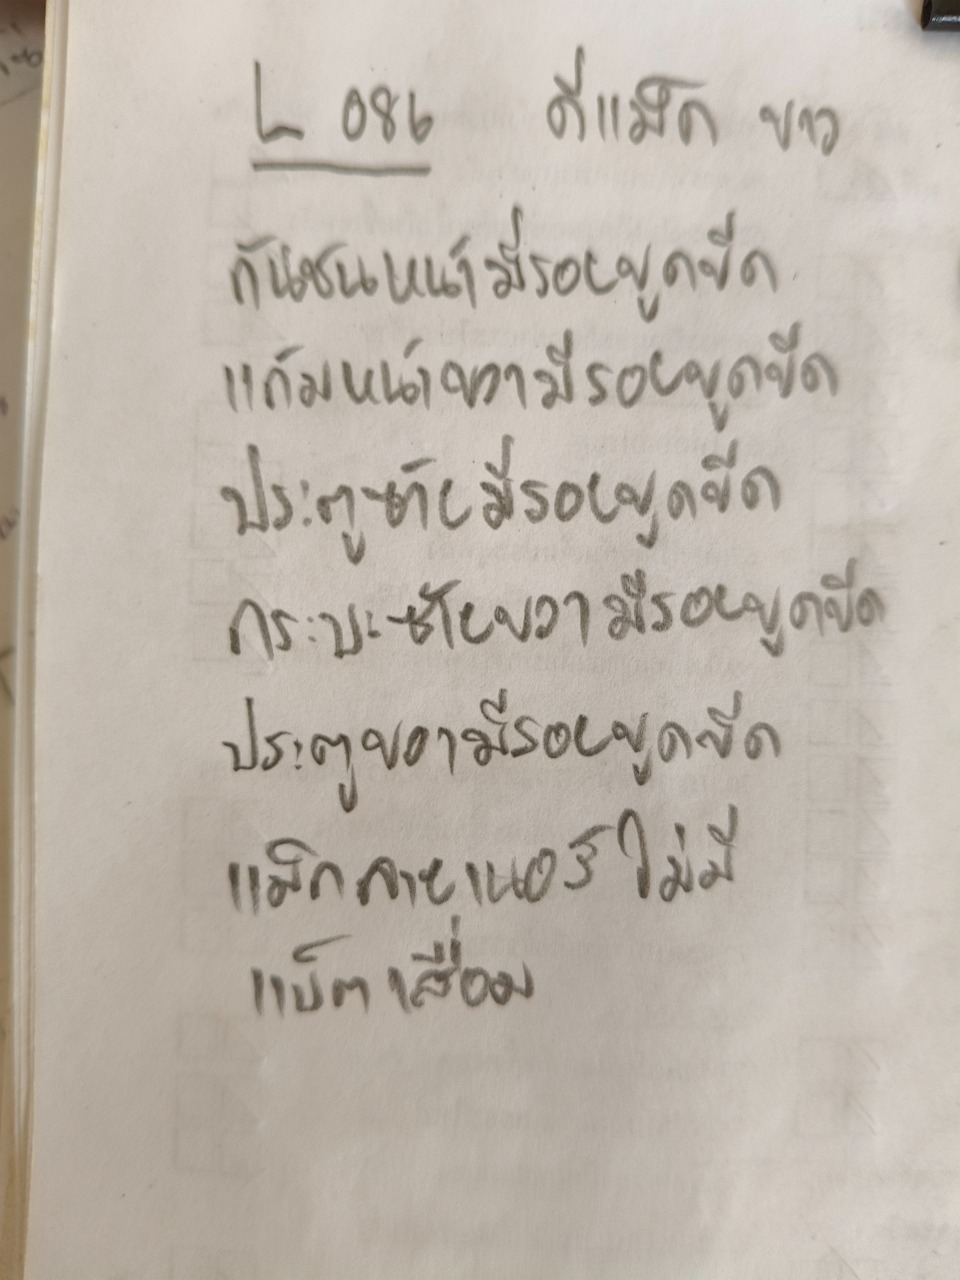 L 086 ดีแม็ค ขาว
กันชนหน้ามีรอยขูดขีด
แก้มหน้าขวามีรอยขูดขีด
ประตูซ้ายมีรอยขูดขีด
กระบะซ้ายขวามีรอยขูดขีด
ประตูขวามีรอยขูดขีด
แม็กลายเนอร์ไม่มี
แบ็ตเสื่อม